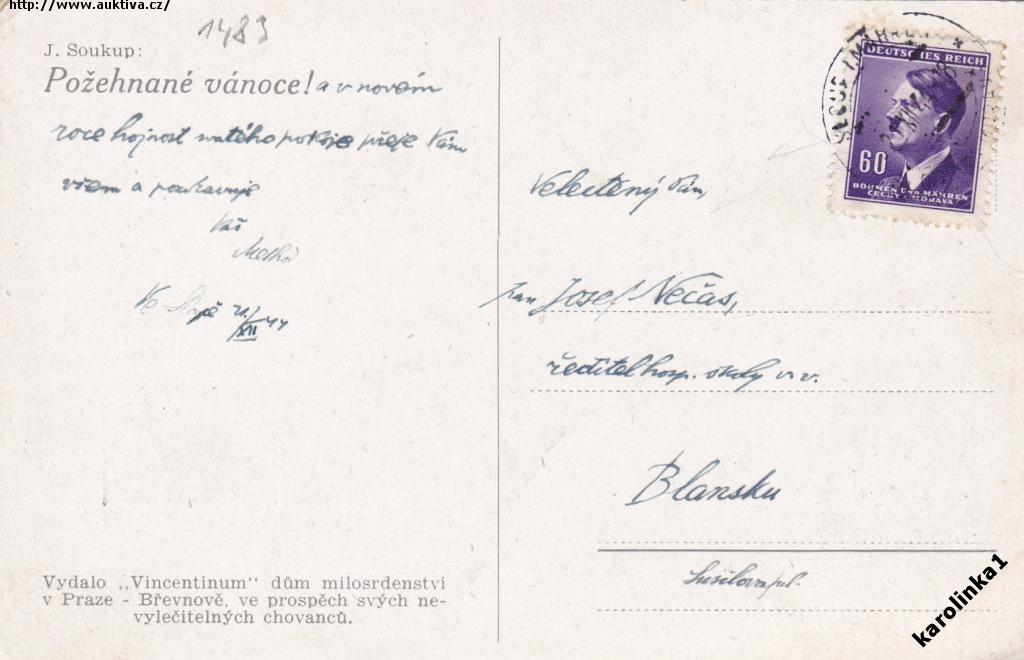 http://www.auktiva.cz/
1483
J. Soukup:
Požehnané vánoce! a v novém
roce hojnost svatého pokoje přeje Vám
všem a pozdravuje
Váš
Ve Sloupě 21/XII 44
Velectěný Pán,
pan Josef Nečas,
ředitel hosp. školy v. v.
Blansku
Sušilova ul.
DEUTSCHES REICH
60
BÖHMEN UND MÄHREN
ČECHY A MORAVA
Vydalo „Vincentinum" dům milosrdenství
v Praze - Břevnově, ve prospěch svých ne-
vylečitelných chovanců.
karolinka1